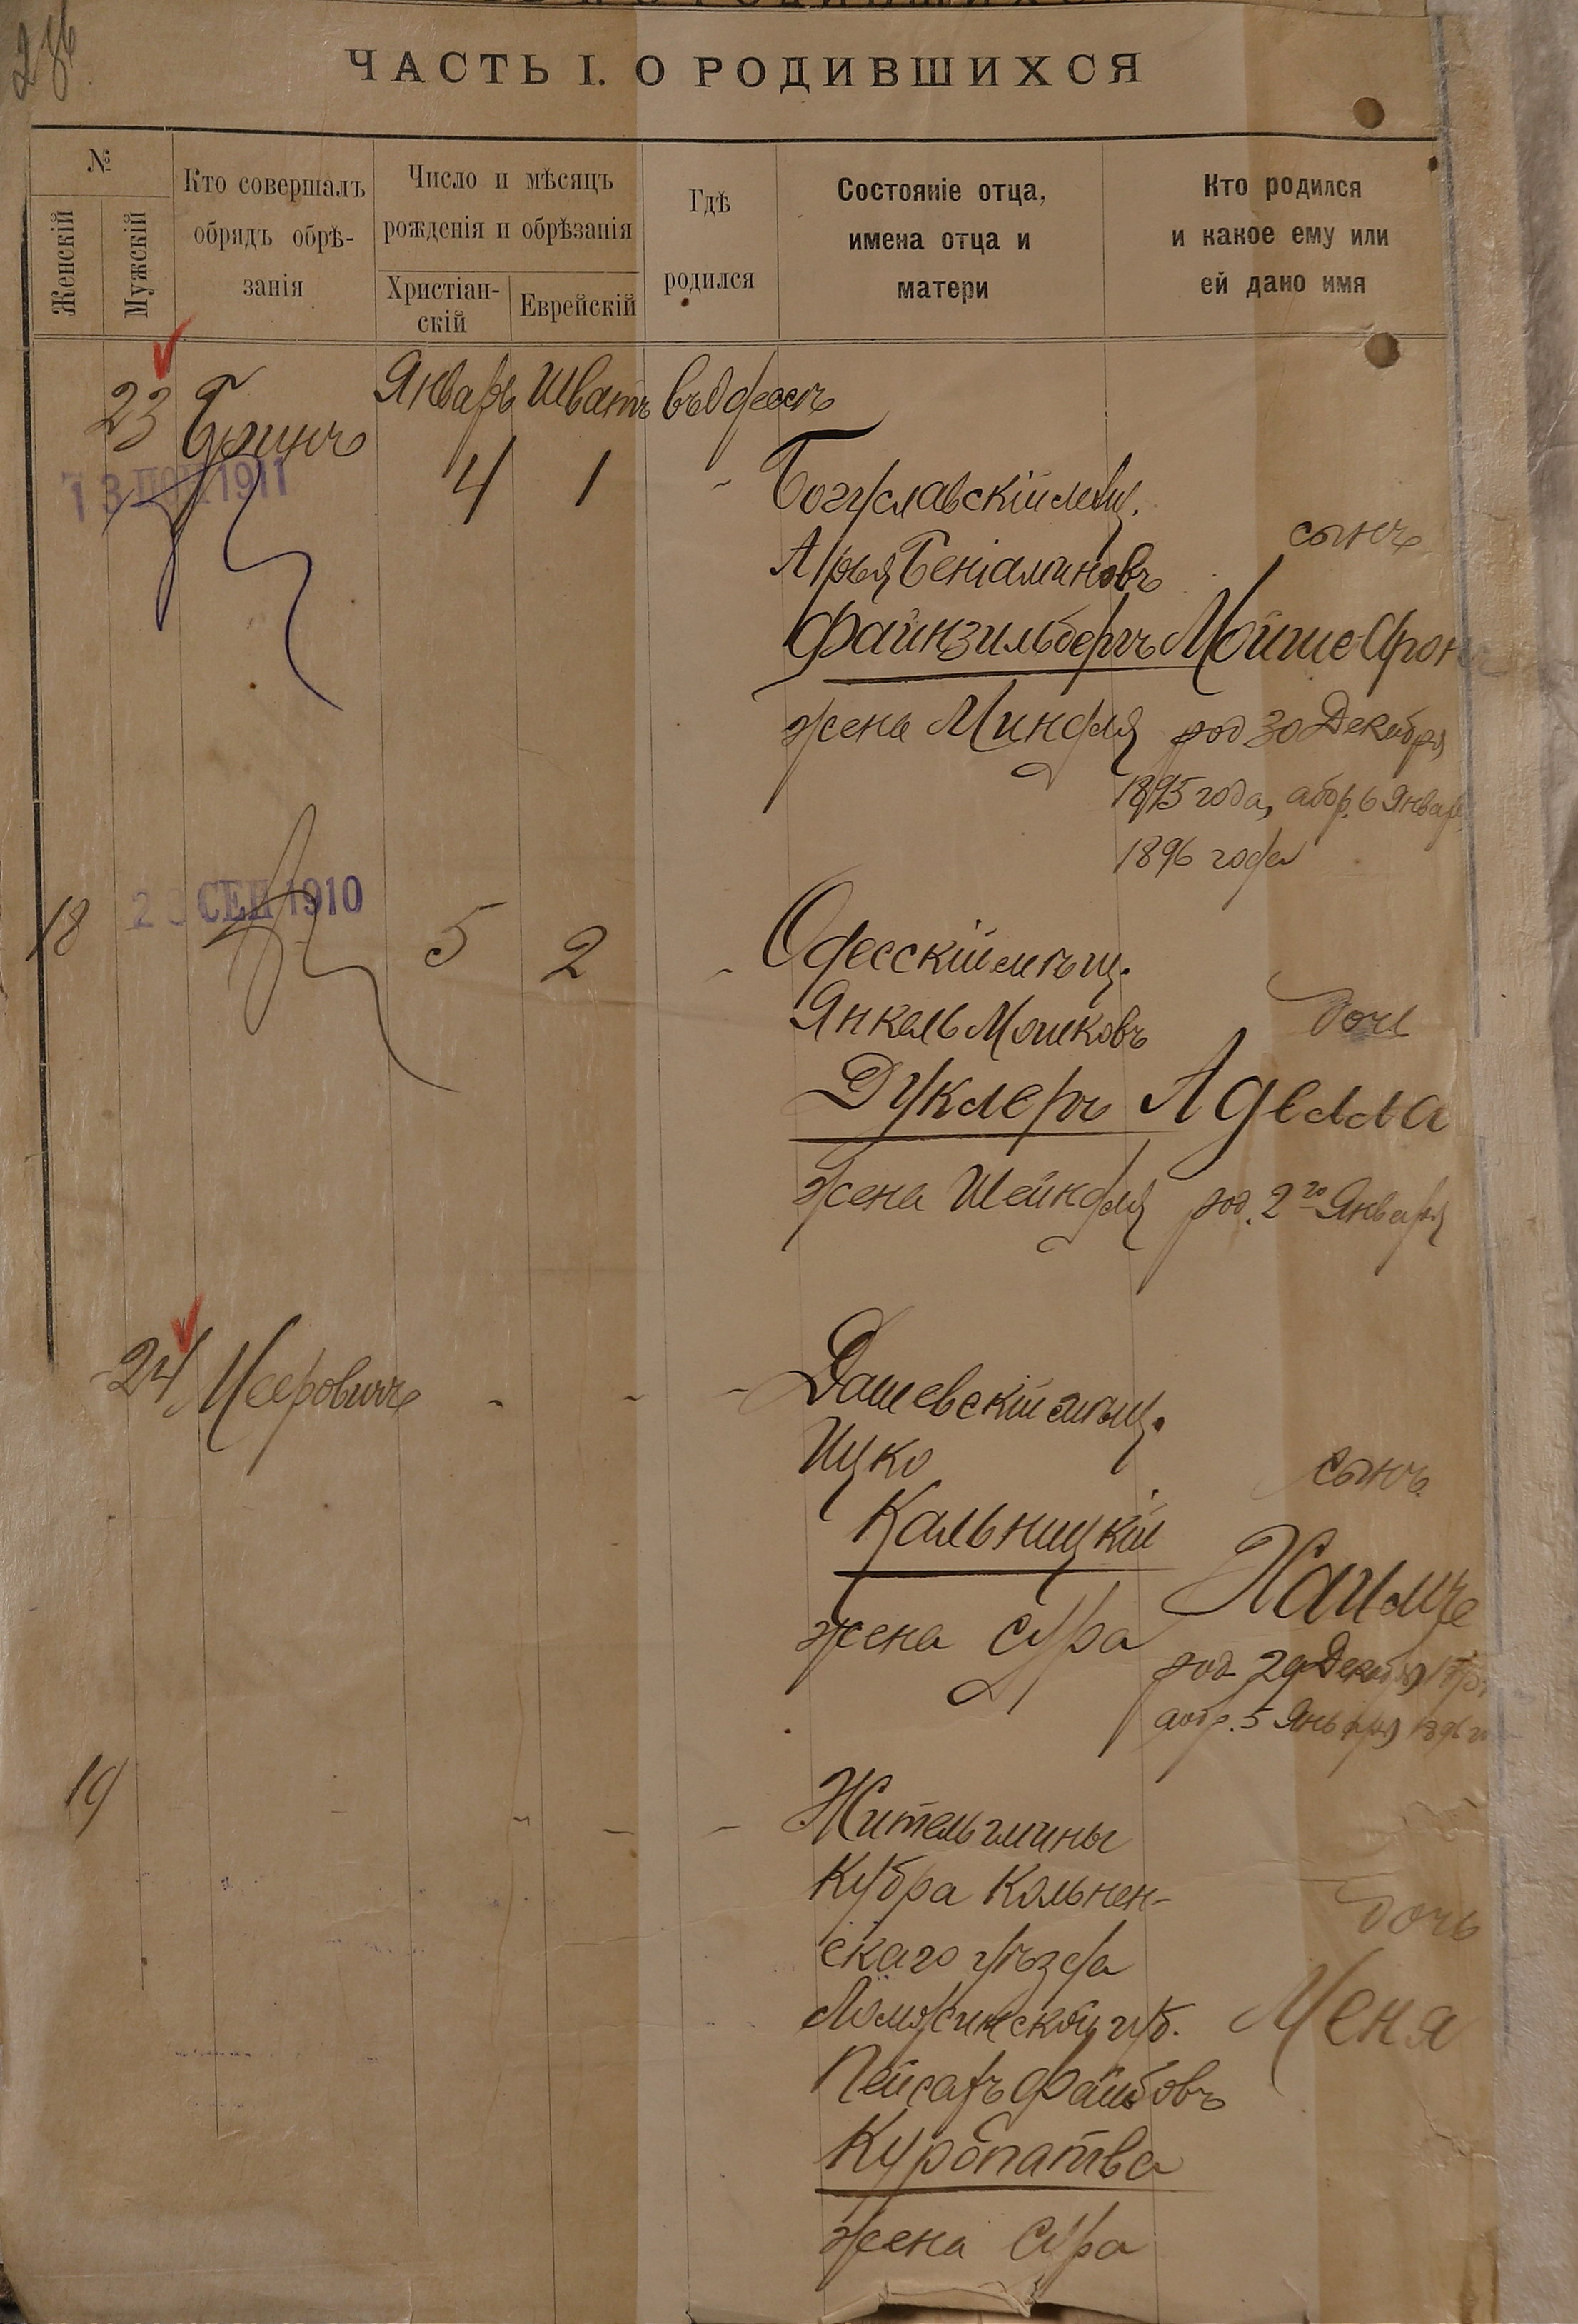 276
ЧАСТЬ I. О РОДИВШИХСЯ
№
Женскій
Мужскій
Кто совершалъ
обрядъ обрѣ-
занія
Число и мѣсяцъ
рожденія и обрѣзанія
Христіан-
скій
Еврейскій
Гдѣ
родился
Состояніе отца,
имена отца и
матери
Кто родился
и какое ему или
ей дано имя
Январь Шватъ въ Одессѣ
23 4 1 - Богуславскій мѣщ.
1911
сынъ
Арья Беніаминовъ
Файнзильбергъ Мойше-Арон
жена Миндля род 30 Декабря
1895 года, а обр. 6 Январ
1896 года
СЕН 1910
18 5 2 - Одесскій мѣщ.
Янкель Мошковъ дочь
Дуклеръ Аделла
жена Шейндля род. 2го Января
24 Мееровичъ - - - Дашевскій мѣщ.
Ицко сынъ
Кальницкій
Хаимъ
жена Сура
род. 29 Декабря
а обр. 5 Января 1896 го
19 - - - Житель гмины
Кубра Кольнен-
дочь
скаго уѣзда
Ломжинской губ. Меня
Пейсахъ Файбовъ
Куропатва
жена Сура